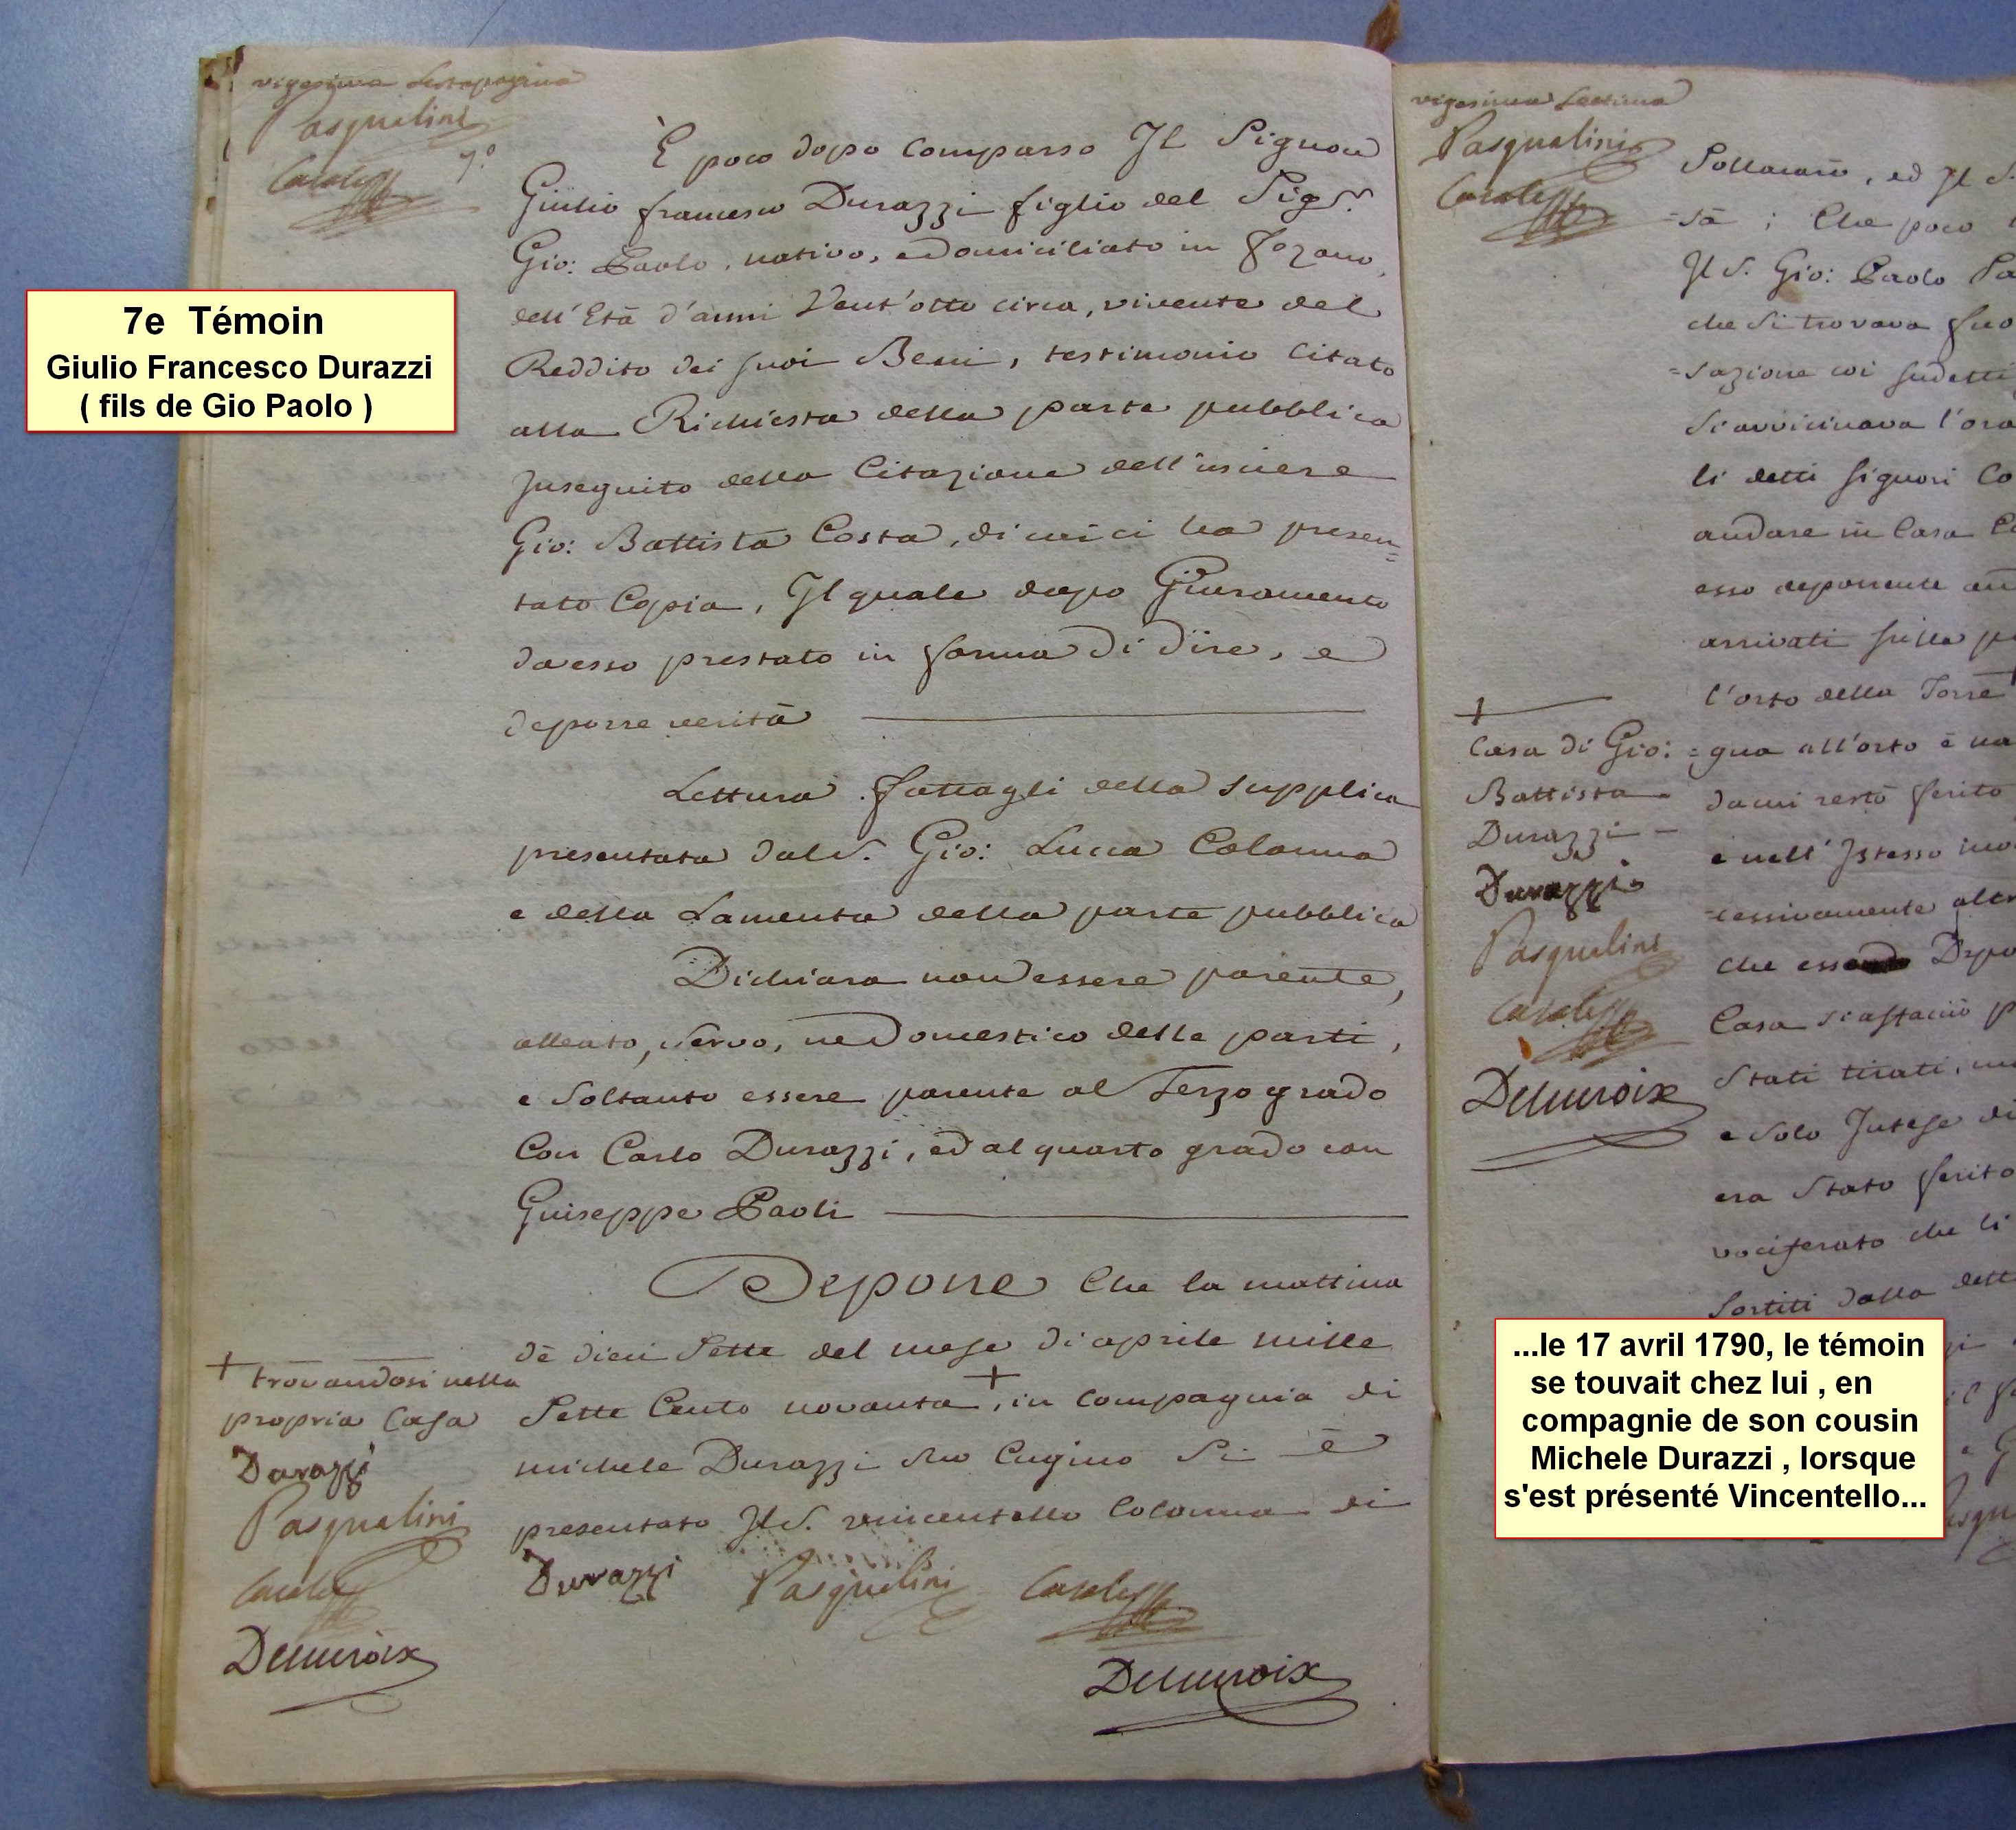 vigesima Sesta pagina
Pasqualini
7.º
È poco dopo comparso Il Signor
Giulio francesco Durazzi figlio del Sig.r
Gio: Paolo, nativo, e domiciliato in fozano,
dell'Età d'anni Vent'otto circa, vivente del
Reddito dei suoi Beni, testimonio Citato
alla Richiesta della parte pubblica
Inseguito della Citazione dell'usciere
Gio: Battista Costa, di cui ci ha presen=
tato Copia, Il quale dopo Giuramento
da esso prestato in forma di dire, e
deporre verità
Lettura fattagli della supplica
presentata dal S. Gio: Luca Colonna
e della Lamenta della parte pubblica
Dichiara non essere parente,
alleato, servo, ne Domestico delle parti,
e Soltanto essere parente al Terzo grado
Con Carlo Durazzi, ed al quarto grado con
Guiseppe Paoli
Depone Che la mattina
dè dieci Sette del mese di aprile mille
Sette Cento novanta +, in compagnia di
michele Durazzi suo Cugino Si è
presentato Il S. vincentello Colonna di
Durazzi Pasqualini
Delucroix
+ trovandosi nella
propria Casa
Durazzi
Pasqualini
Delucroix
7e Témoin
Giulio Francesco Durazzi
( fils de Gio Paolo )
vigesima Settima
Pasqualini
Sollacarò, ed Il S.
=sà ; Che poco
Il S. Gio: Paolo
che Si trovava
=sazione coi sudetti
Si avvicinava l'ora
li detti Signori
andare in Casa
esso deponente
arrivati sulla
l'orto della Torre
=gua all'orto è
da cui restò ferito
e nell'Istesso
=cessivamente
che
Casa si affacciò
Stati tirati,
e Solo Intese di
era Stato ferito
vociferato che li
Sortiti dalla
+
Casa di Gio:
Battista
Durazzi
Durazzi
Pasqualini
Delucroix
...le 17 avril 1790, le témoin
se touvait chez lui , en
compagnie de son cousin
Michele Durazzi , lorsque
s'est présenté Vincentello...